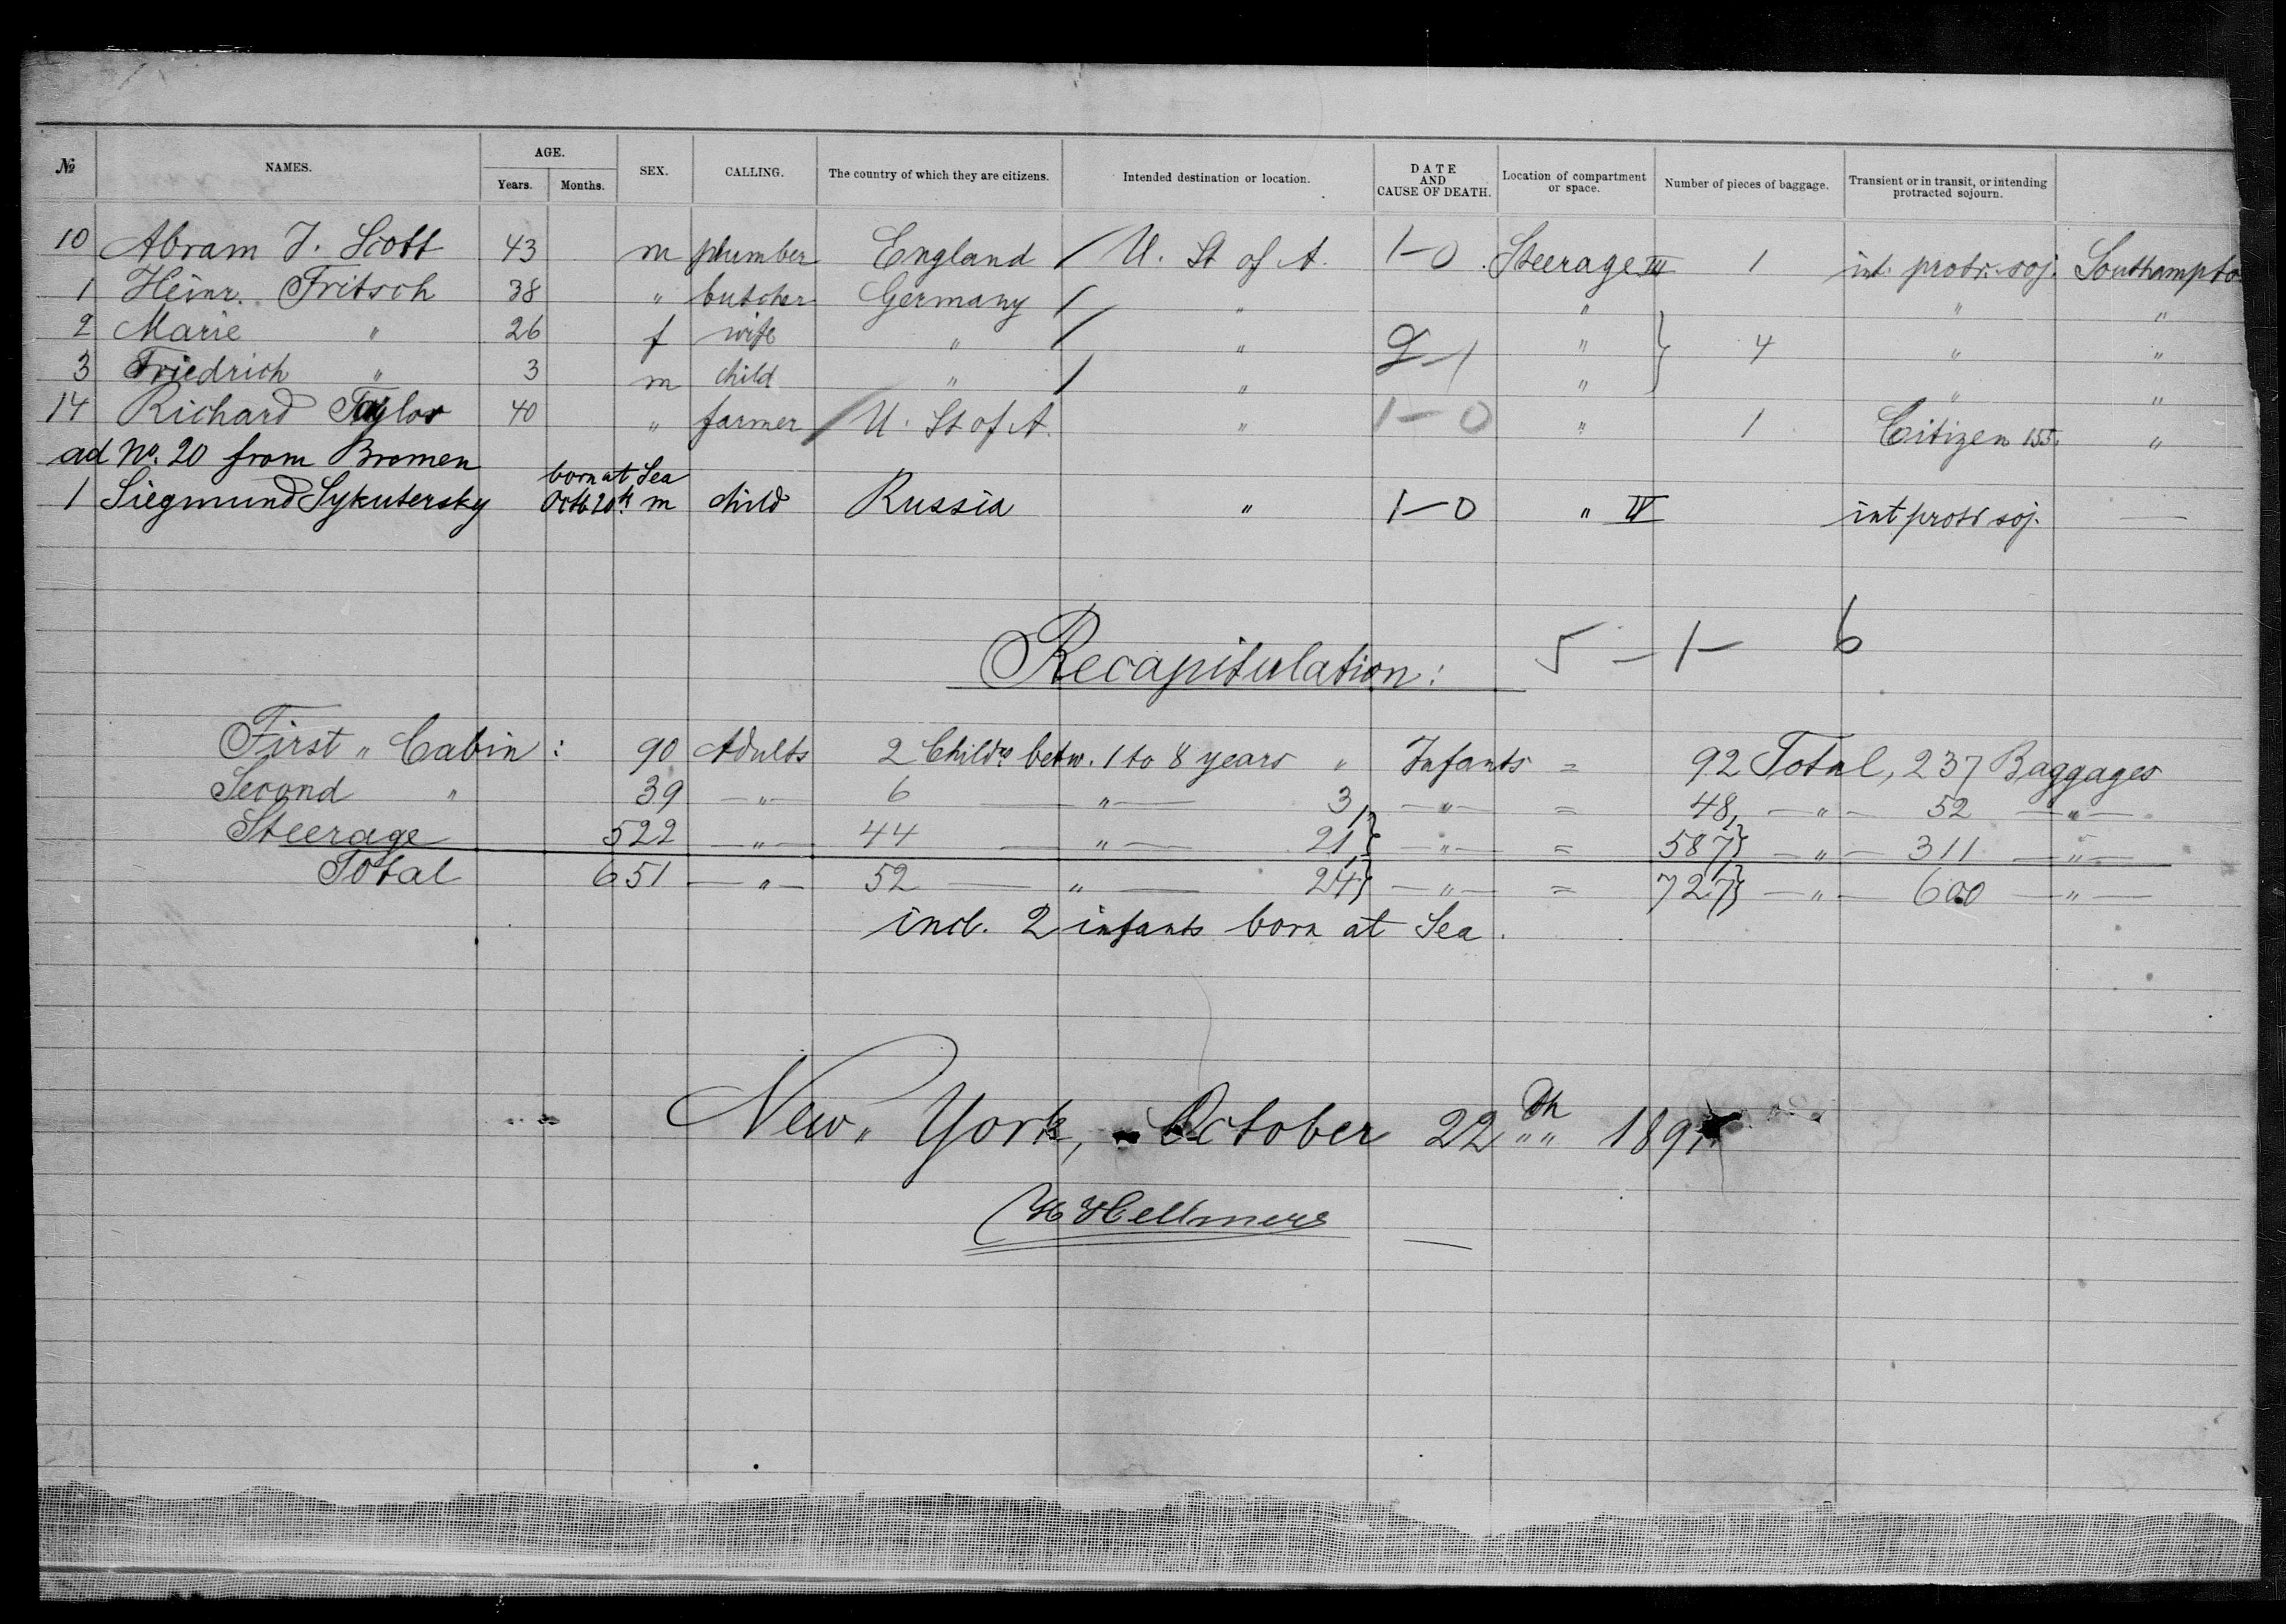 № NAMES. AGE. Years. Months. SEX. CALLING. The country of which they are citizens. Intended destination or location. DATE AND CAUSE OF DEATH. Location of compartment or space. Number of pieces of baggage. Transient or in transit, or intending protracted sojourn.
10 Abram J. Scott 43 m plumber England / U. St of A. 1-0 Steerage III 1 int. protr. soj. Southampto
1 Heinr. Fritsch 38 " butcher Germany / " " " "
2 Marie " 26 f wife " / " 2-1 " } 4 " "
3 Friedrich " 3 m child " / " " " "
14 Richard Taylor 40 " farmer / U. St of A. " 1-0 " 1 Citizen 155. "
ad No. 20 from Bremen
born at Sea
1 Siegmund Sykutersky Octb 20th m child Russia " 1-0 " IV int protr soj. —
Recapitulation: 5 - 1 - 6
First " Cabin: 90 Adults 2 Childrn betw. 1 to 8 years " Infants = 92 Total, 237 Baggages
Second " 39 —"— 6 —"— 3, —"— = 48, —"— 52 —"—
Steerage 522 —"— 44 —"— 21} —"— = 587} —"— 311 —"—
Total 651 —"— 52 —"— 24} —"— = 727} —"— 600 —"—
incl. 2 infants born at Sea.
New " York, October 22th 1891.
H Hellmers